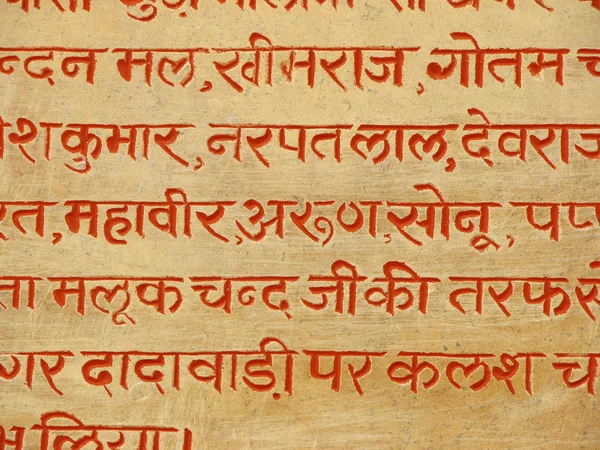 न्दन मल, खीमराज, गोतम च
ेशकुमार, नरपतलाल, देवराज
रत, महावीर, अरूण, सोनू, पप्
ता मलूक चन्द जी की तरफ से
गर दादावाड़ी पर कलश च
भ लिया।